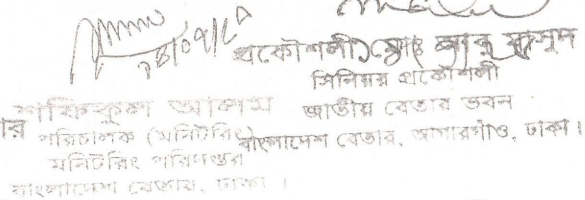 প্রকৌশলী মোঃ আবু
সিনিয়র প্রকৌশলী
জাতীয় বেতার ভবন
বাংলাদেশ বেতার, আগারগাঁও, ঢাকা।
শফিকুল আলম
পরিচালক (মনিটরিং)
মনিটরিং পরিদপ্তর
বাংলাদেশ বেতার, ঢাকা।